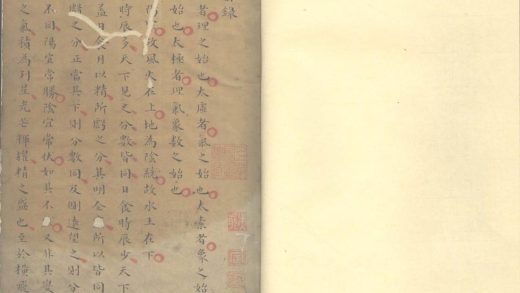 錄
者理之始也太虛者氣之始也太素者象之始
始也太極者理氣象數之始也
故風火在上地為陰統故水土在下
時辰多天下見之分數皆同日食時辰少天下
益日食月以精所虧之分其明全所以皆同
虧之分正當其下則分數同及則遠望之則分
不同陽宜常勝陰宜常伏如其不又非其
之氣積為列星光芒輝耀精之盛也至於